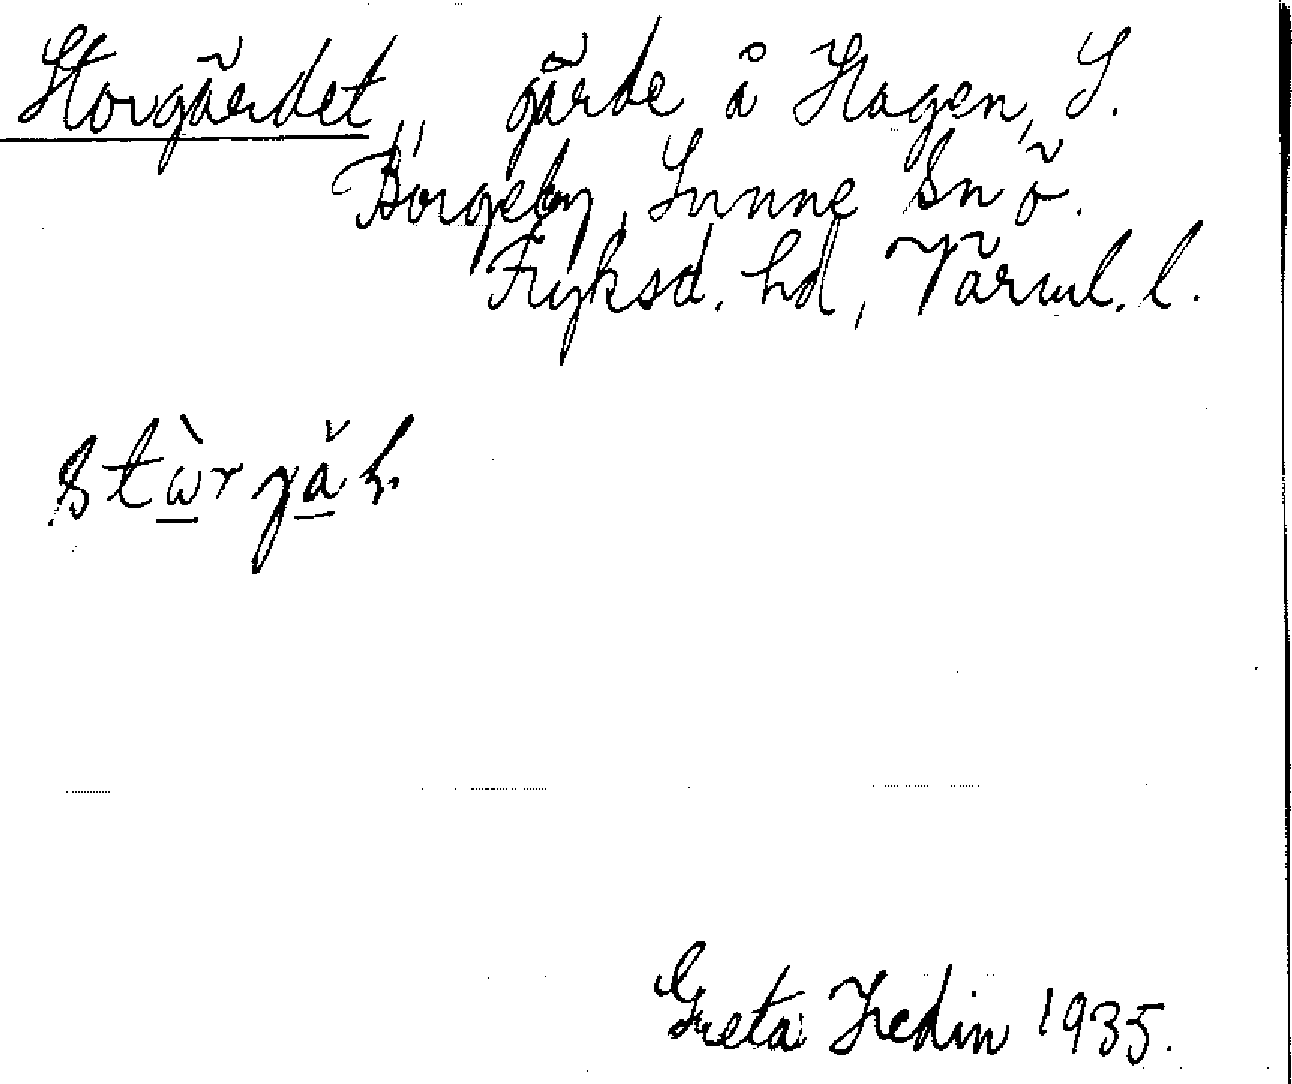 Storgärdet, gärde å Hagen, S.
Borgeby, Sunne sn ö.
Fryksd. hd, Värml. l.
Greta Hedin 1935.